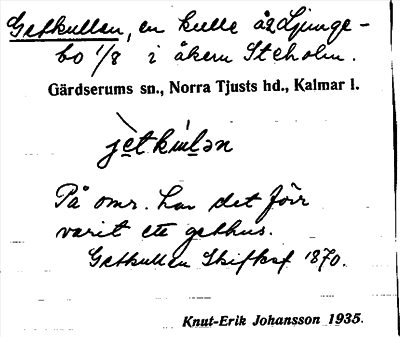 Getkullen, en kulle å Ljunge-
bo 1/8 i åkern Steholm.
Gärdserums sn., Norra Tjusts hd., Kalmar l.
På omr. har det förr
varit ett gethus.
Getkullen Skifteskf 1870.
Knut-Erik Johansson 1935.